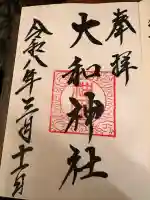 奉拝
大和神社
令和八年三月十一日